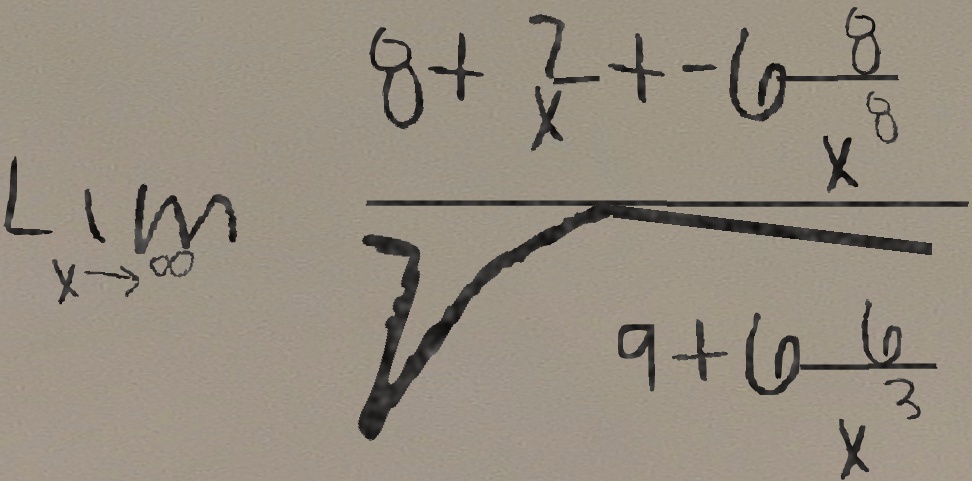 \lim_{x \to \infty} \frac{8 + \frac{7}{x} + -6\frac{8}{x^8}}{\sqrt{9 + 6\frac{6}{x^3}}}